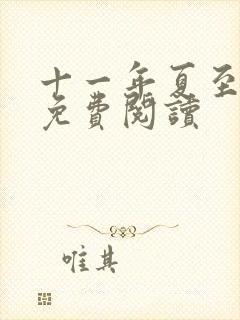 十一年夏至
免費閱讀
唯其